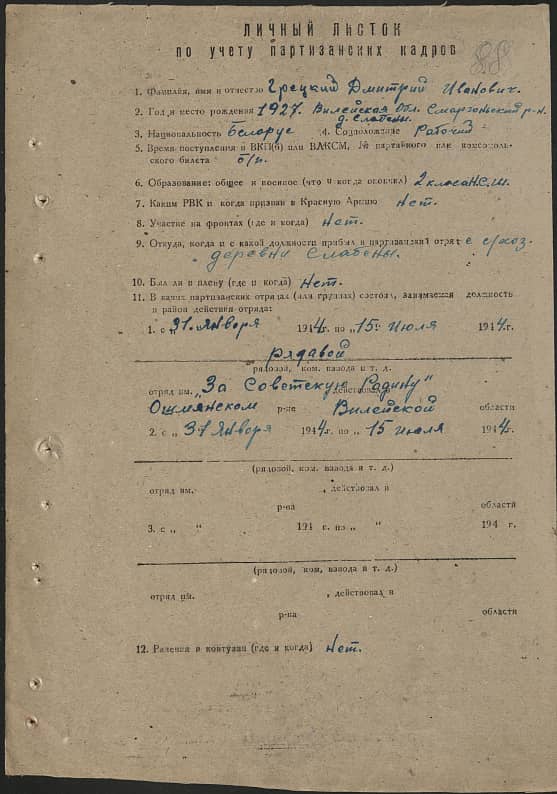 ЛИЧНЫЙ ЛИСТОК
по учету партизанских кадров
88
1. Фамилия, имя и отчество Грецкий Дмитрий Иванович.
2. Год и место рождения 1927. Вилейская Обл. Сморгоньский р-н.
д. Слабены.
3. Национальность Белорус 4. Соцположение Рабочий
5. Время поступления в ВКП(б) или ВЛКСМ, № партийного или комсомоль-
ского билета б/п.
6. Образование: общее и военное (что и когда окончил) 2 класа Н.С.Ш.
7. Каким РВК и когда призван в Красную Армию Нет.
8. Участие на фронтах (где и когда) Нет.
9. Откуда, когда и с какой должности прибыл в партизанский отряд с с/хоз.
деревни Слабены.
10. Был ли в плену (где и когда) Нет.
11. В каких партизанских отрядах (или группах) состоял, занимаемая должность
и район действия отряда:
1. с „31 Января 1944 г. по „15 Июля 1944 г.
рядавой
рядовой, ком. взвода и т. д.
отряд им. „За Советскую Радину" действовал в
Ошмянском р-не Вилейской области
2. с „31 Января 1944 г. по „15 Июля 1944 г.
(рядовой, ком. взвода и т. д.)
отряд им. , действовал в
р-на области
3. с „ “ 194 г. по „ “ 194 г.
(рядовой, ком, взвода и т. д.)
отряд им. , действовал в
р-на области
12. Ранения и контузии (где и когда) Нет.